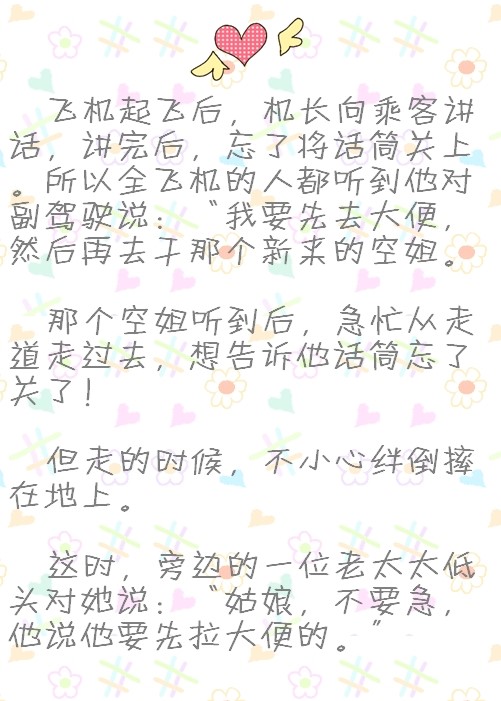 飞机起飞后，机长向乘客讲
话，讲完后，忘了将话筒关上
。所以全飞机的人都听到他对
副驾驶说：“我要先去大便，
然后再去干那个新来的空姐。
那个空姐听到后，急忙从走
道走过去，想告诉他话筒忘了
关了！
但走的时候，不小心绊倒摔
在地上。
这时，旁边的一位老太太低
头对她说：“姑娘，不要急，
他说他要先拉大便的。”